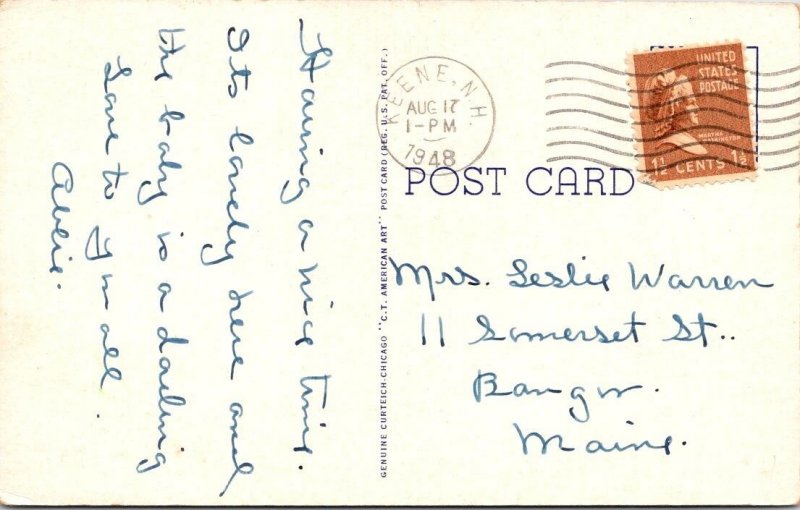 Having a nice time.
Its lovely here and
the baby is a darling
Love to you all.
Abbie.
GENUINE CURTEICH-CHICAGO "C.T. AMERICAN ART" POST CARD (REG. U.S. PAT. OFF.)
KEENE, N.H.
AUG 17
1-PM
1948
UNITED
STATES
POSTAGE
MARTHA
WASHINGTON
1½ CENTS 1½
POST CARD
Mrs. Leslie Warren
11 Somerset St..
Bangor.
Maine.